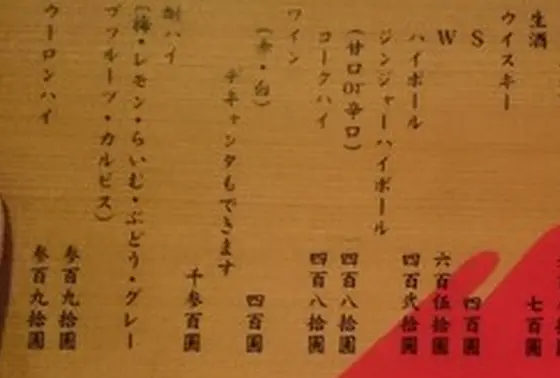 生酒 七百圓
ウイスキー
S 四百圓
W 六百伍拾圓
ハイボール 四百弐拾圓
ジンジャーハイボール
(甘口or辛口) 四百八拾圓
コークハイ 四百八拾圓
ワイン
(赤・白) 四百圓
デキャンタもできます
千参百圓
酎ハイ
(梅・レモン・らいむ・ぶどう・グレー
プフルーツ・カルピス) 参百九拾圓
ウーロンハイ 参百九拾圓